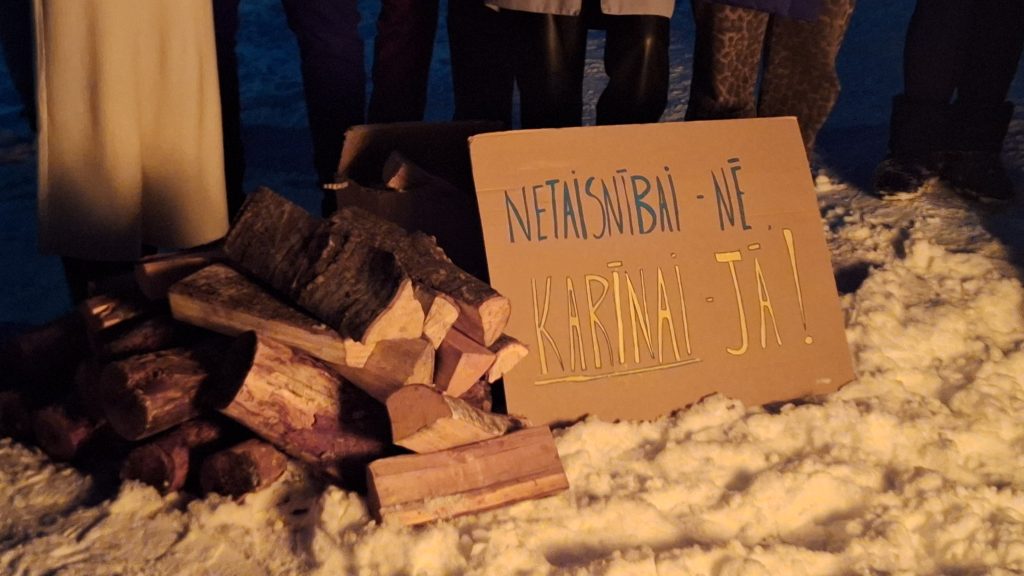 NETAISNĪBAI - NĒ,
KARĪNAI - JĀ!